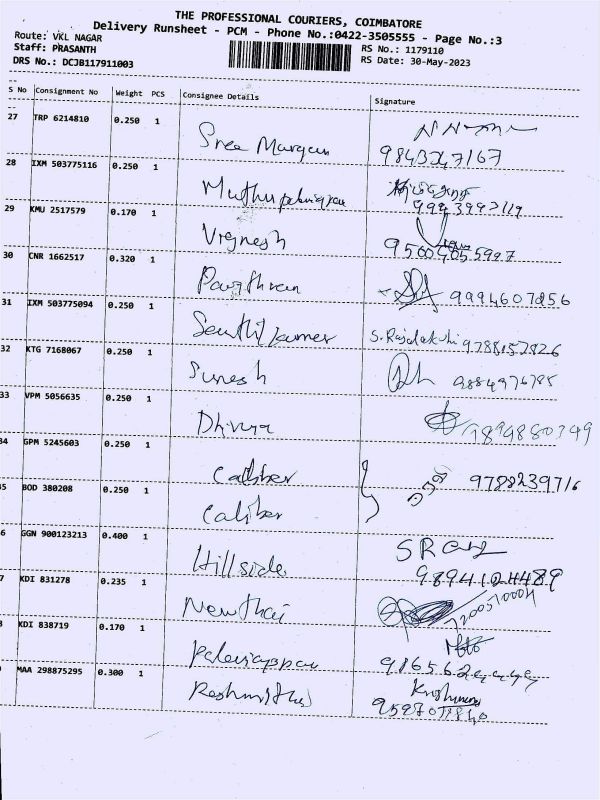 THE PROFESSIONAL COURIERS, COIMBATORE
Delivery Runsheet - PCM - Phone No.:0422-3505555 - Page No.:3
Route: VKL NAGAR
RS No.: 1179110
Staff: PRASANTH
RS Date: 30-May-2023
DRS No.: DCJB117911003
S No Consignment No Weight PCS Consignee Details Signature
27 TRP 6214810 0.250 1
Sree Murgan 9843247167
28 IXM 503775116 0.250 1
29 KMU 2517579 0.170 1
Vignesh
30 CNR 1662517 0.320 1
9994607856
31 IXM 503775094 0.250 1
Senthil kumer S. Rajalakshi 9788157826
32 KTG 7168067 0.250 1
Suresh 9884976785
33 VPM 5056635 0.250 1
Dhivya 9894880349
34 GPM 5245603 0.250 1
Caliber 9788239716
35 BOD 380208 0.250 1
Caliber
6 GGN 900123213 0.400 1
Hillside 9894124489
7 KDI 831278 0.235 1
New thai
8 KDI 838719 0.170 1
MAA 298875295 0.300 1